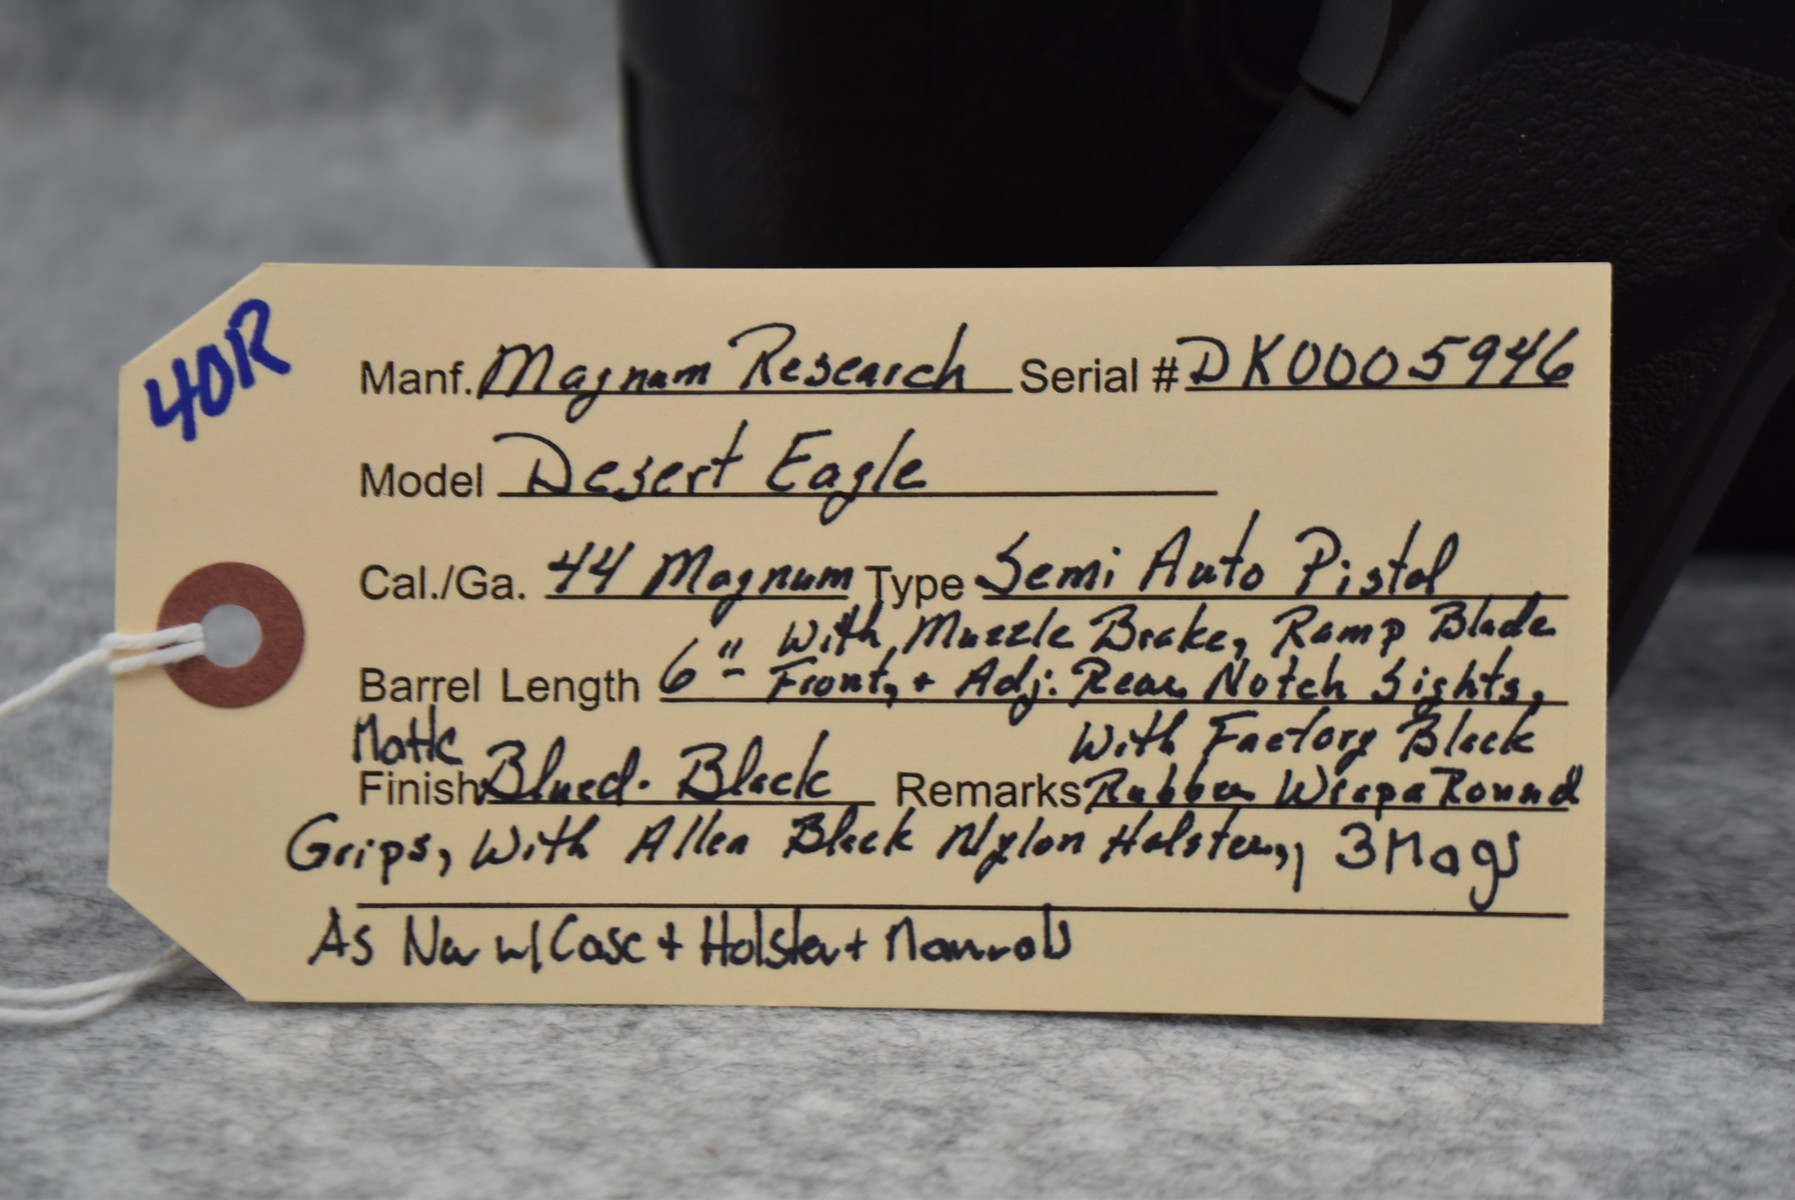 40R
Manf. Magnum Research Serial # DK0005946
Model Desert Eagle
Cal./Ga. 44 Magnum Type Semi Auto Pistol
With Muzzle Brake, Ramp Blade
Barrel Length 6" - Front, + Adj. Rear Notch Sights,
Matte With Factory Black
Finish Blued. Black Remarks Rubber WrapaRound
Grips, With Allen Black Nylon Holster, 3 Mags
As New w/ Case + Holster + Manuals